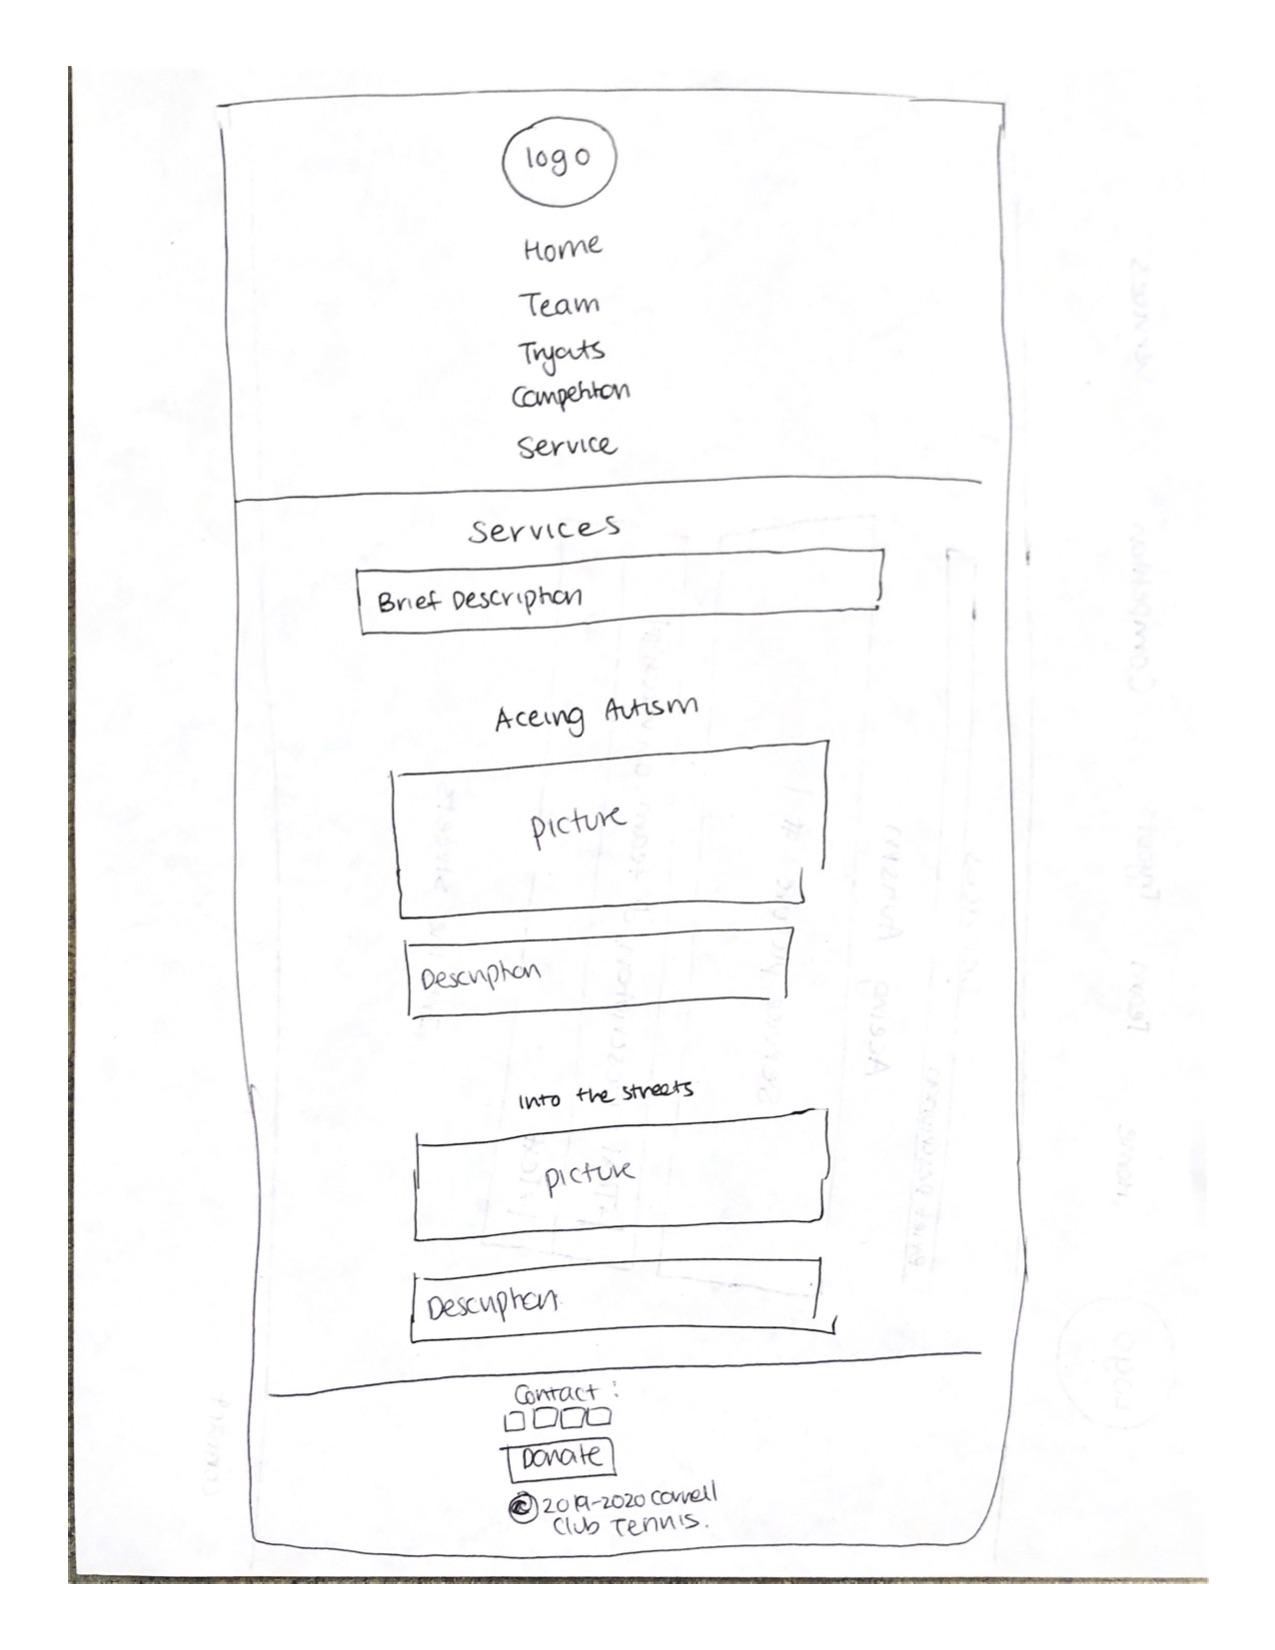 logo
Home
Team
Tryouts
Competition
Service
Services
Brief Description
Aceing Autism
picture
Description
Into the streets
picture
Description
Contact :
Donate
© 2019-2020 Cornell
Club Tennis.